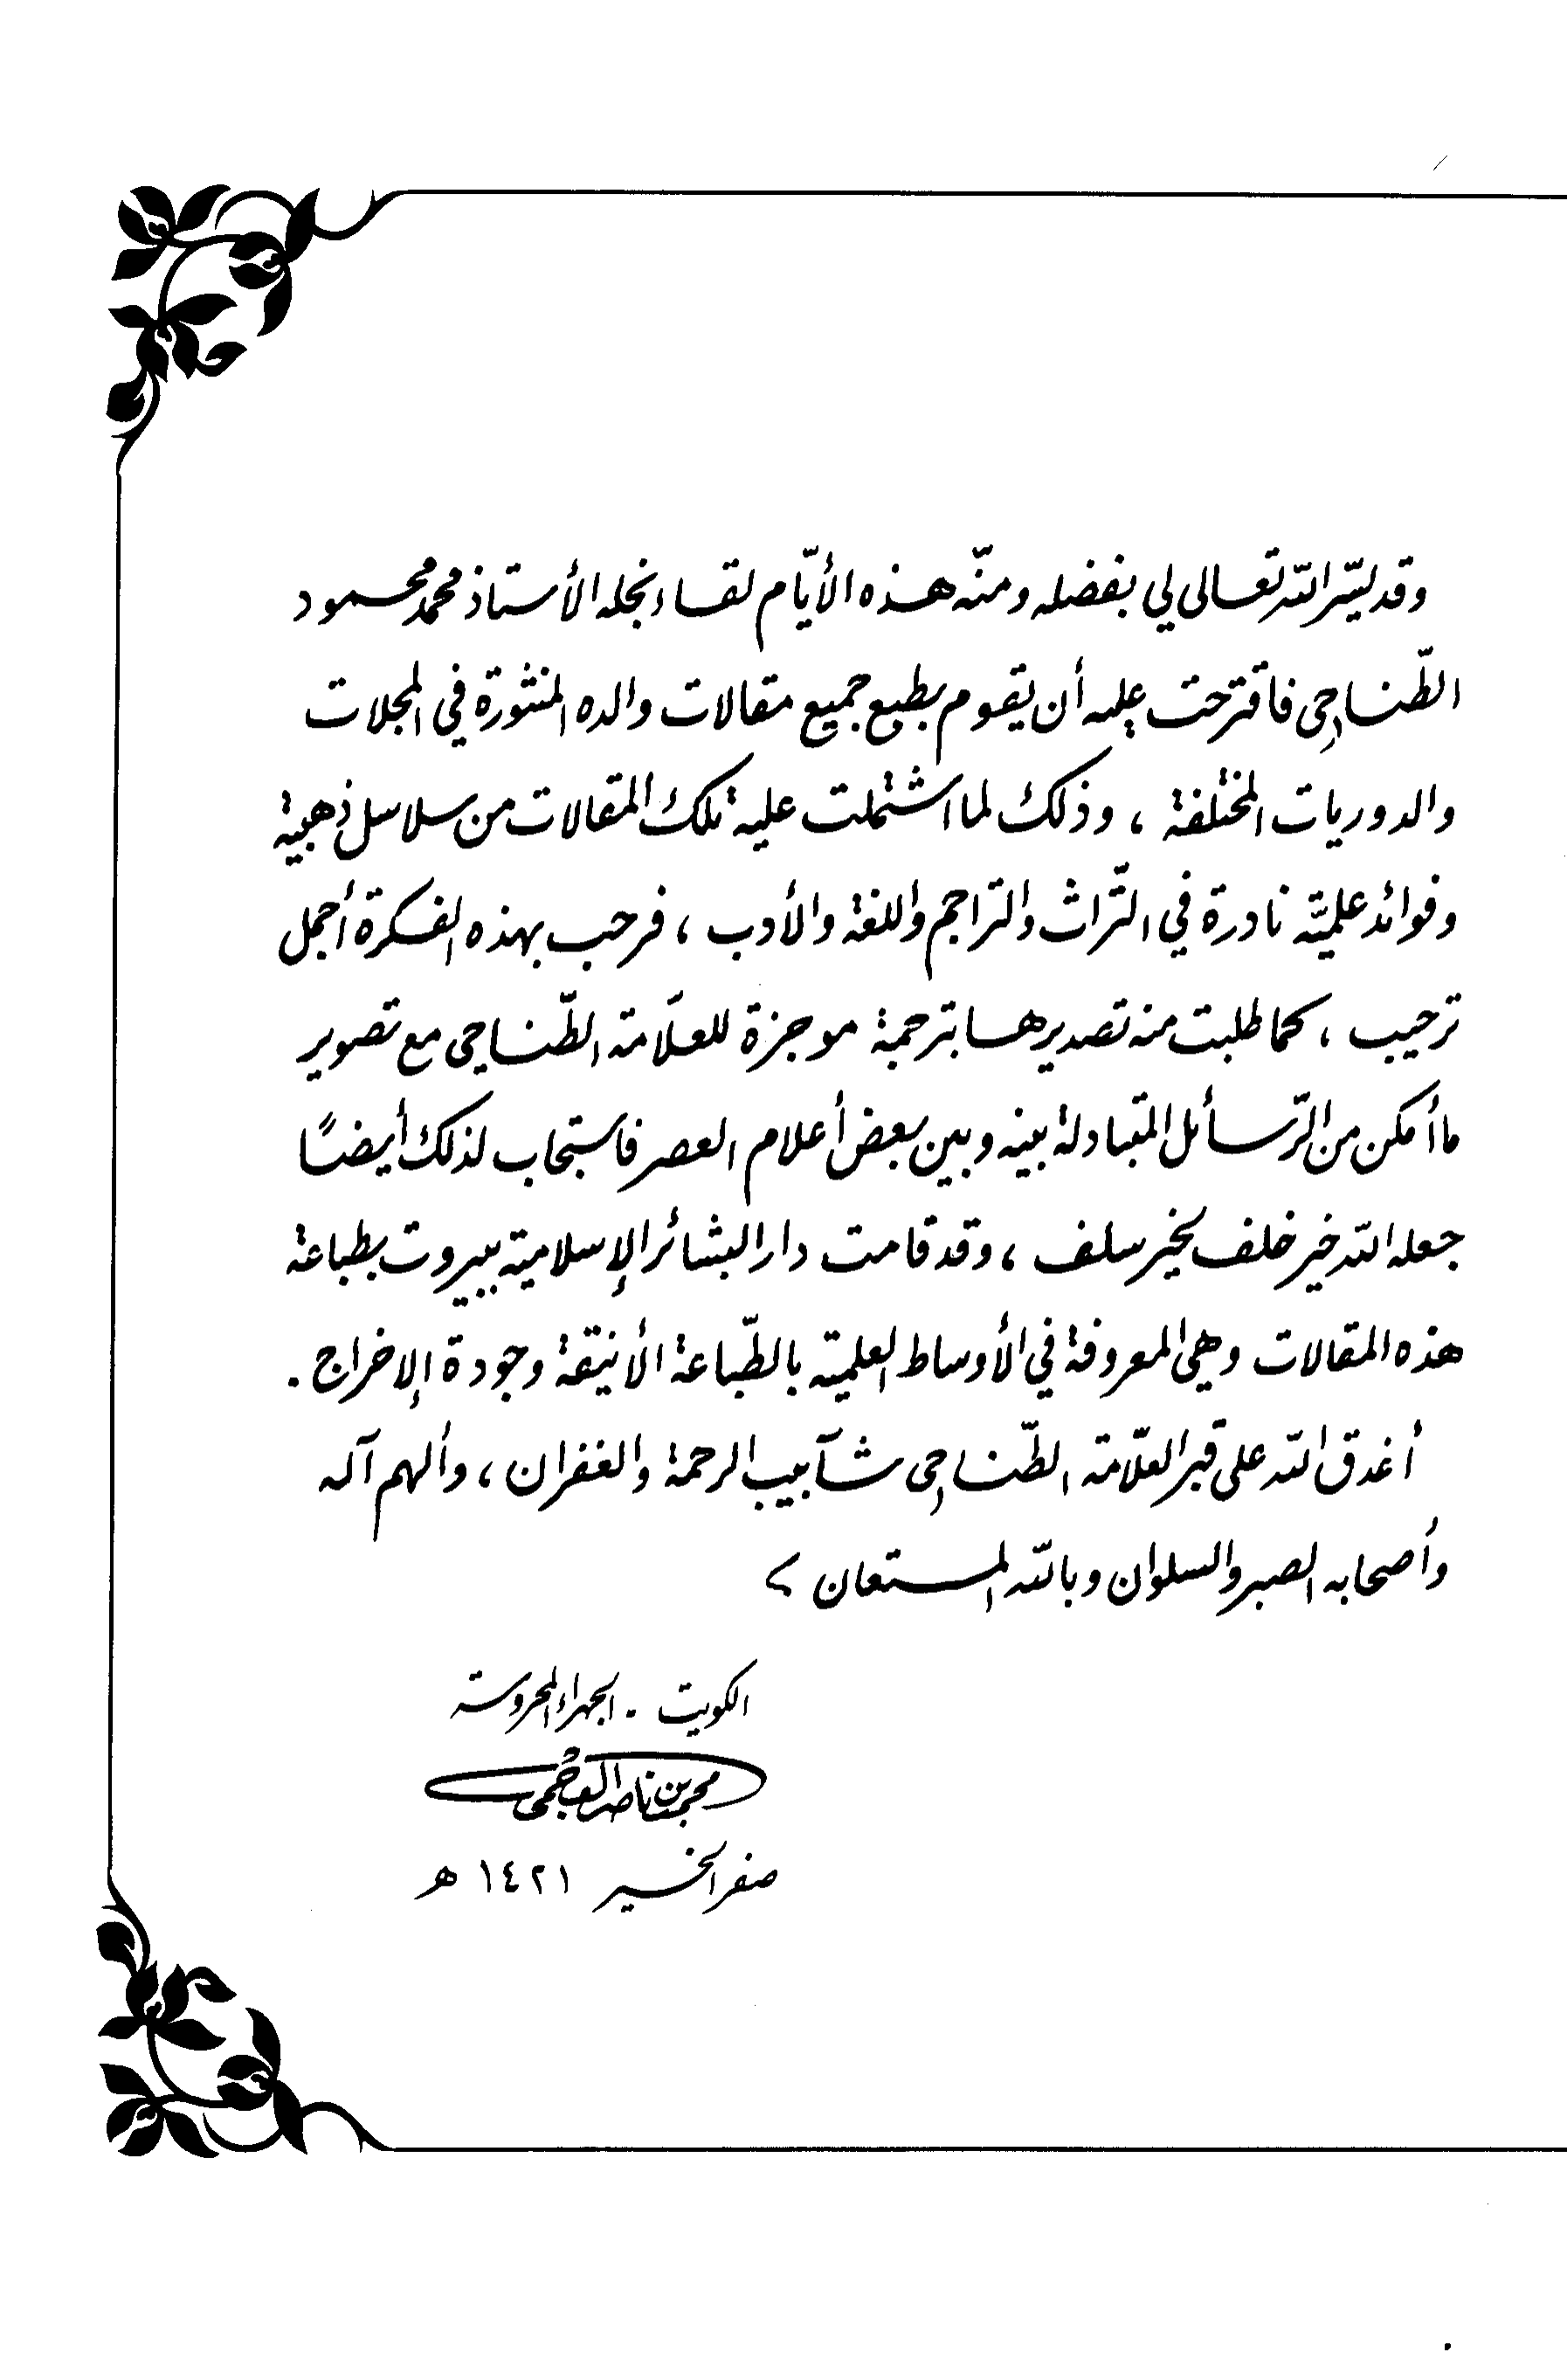 وقد يسّر الله تعالى لي بفضله ومنّه هذه الأيّام لقاء نجله الأستاذ محمد محمود
الطّناحي فاقترحت عليه أن يقوم بطبع جميع مقالات والده المنثورة في المجلات
والدوريات المختلفة ، وذلك لما اشتملت عليه تلك المقالات من سلاسل ذهبية
وفوائد علميَّة نادرة في التّراث والتراجم واللغة والأدب ، فرحب بهذه الفكرة أجمل
ترحيب ، كما طلبت منه تصديرها بترجمة موجزة للعلّامة الطّناحي مع تصوير
ما أمكن من الرّسائل المتبادلة بينه وبين بعض أعلام العصر فاستجاب لذلك أيضًا
جعله الله خير خلف لخير سلف ، وقد قامت دار البشائر الإسلامية ببيروت بطباعة
هذه المقالات وهي المعروفة في الأوساط العلمية بالطّباعة الأنيقة وجودة الإخراج .
أغدق الله على قبر العلّامة الطّناحي شآبيب الرحمة والغفران ، وألهم آله
وأصحابه الصبر والسلوان وبالله المستعان >
الكويت . الجهراء المحروسة
محمد بن ناصر العجمي
صفر الخير ١٤٢١ هـ